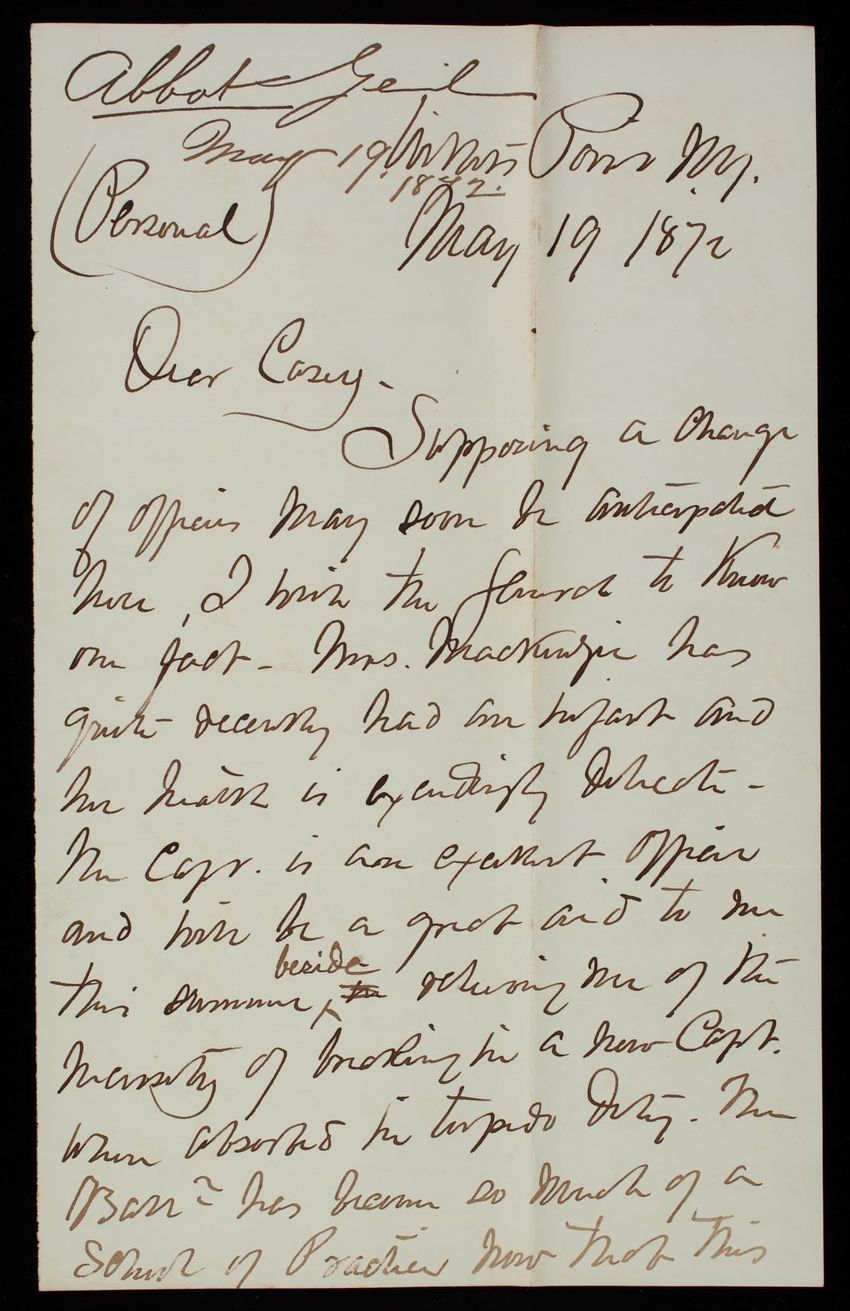 Abbot Genl
May 19. Willets Point N.Y.
1872.
(Personal)
May 19 1872
Dear Casey -
Supposing a change
of officers may soon be anticipated
here, I wish the General to know
one fact - Mrs. Mackenzie has
quite recently had an infant and
her health is exceedingly delicate -
The Capt. is an excellent officer
and will be a great aid to me
this summer, beside relieving me of the
necessity of breaking in a new Capt.
when absorbed in torpedo duty. The
Battn has become so much of a
School of Practice now that this